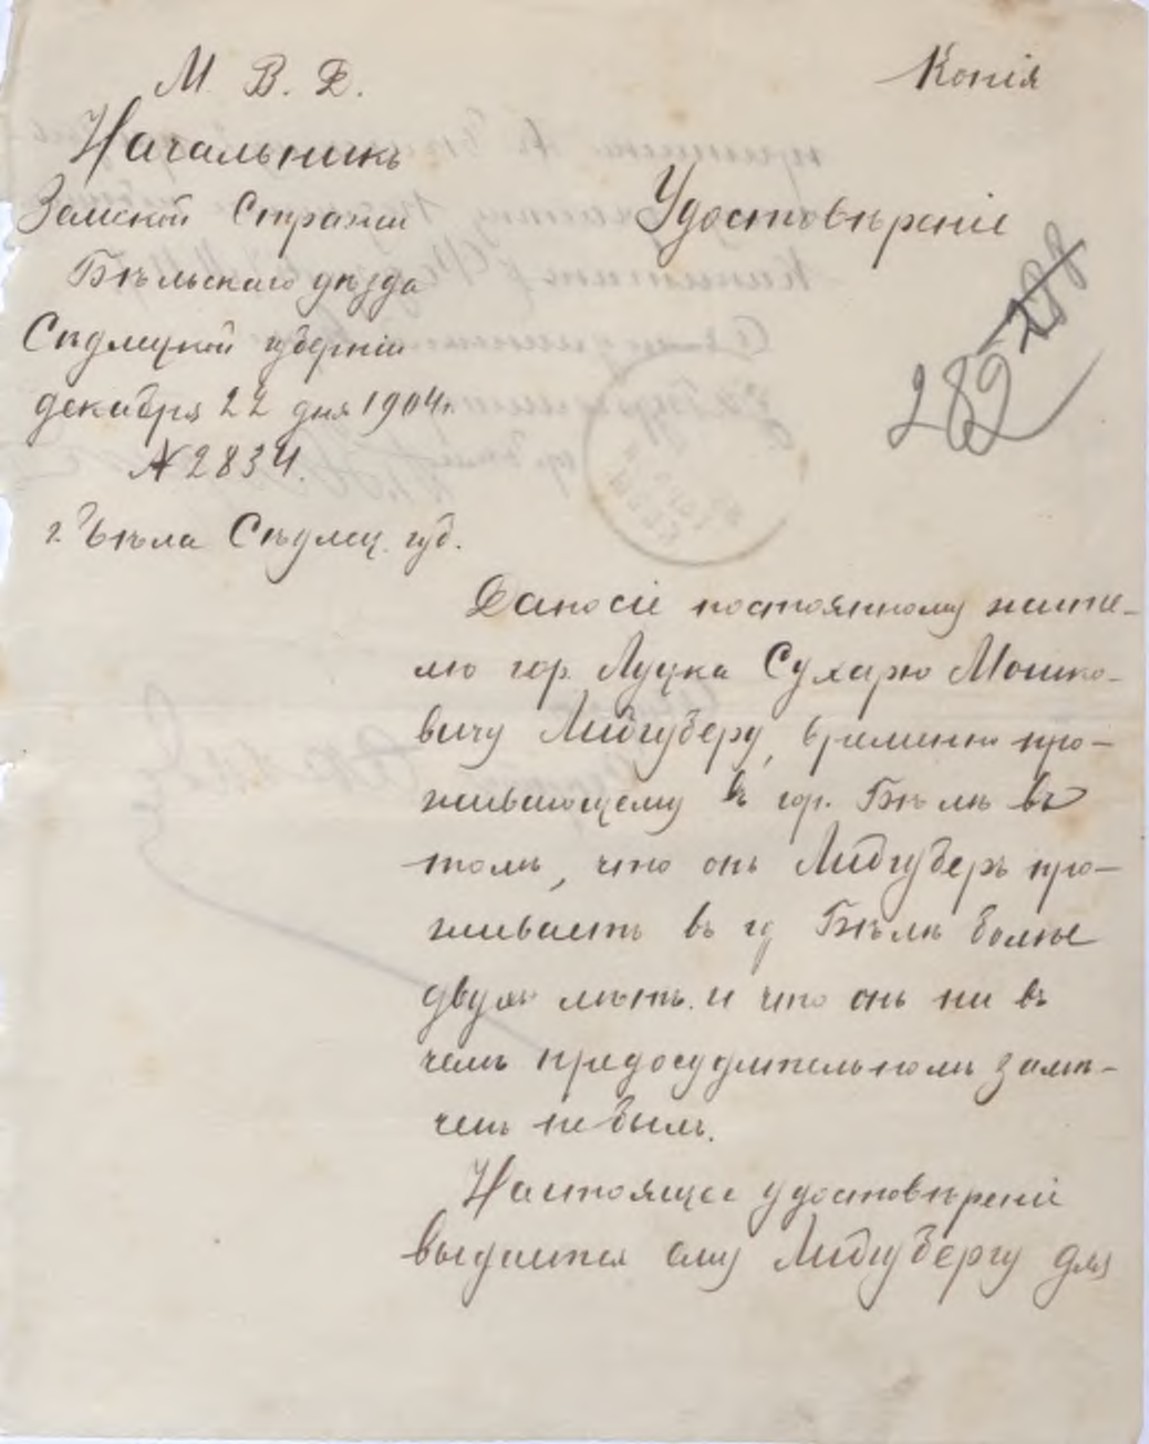 М. В. Д.
Начальникъ
Земской Стражи
Бѣльскаго уѣзда
Сѣдлецкой губерніи
декабря 22 дня 1904 г.
№ 2834.
г. Бѣла Сѣдлец. губ.
Копія
Удостовѣреніе
282
Дано сіе постоянному жите-
лю гор. Луцка Сухарю Мошко-
вичу Лидгуберу, временно про-
живающему въ гор. Бѣлѣ въ
томъ, что онъ Лидгуберъ про-
живаетъ въ г. Бѣлѣ болѣе
двухъ лѣтъ и что онъ ни въ
чемъ предосудительномъ замѣ-
ченъ не былъ.
Настоящее удостовѣреніе
выдается ему Лидгубергу для